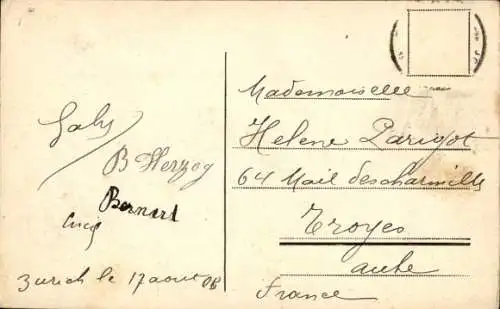 Gaby
B Herzog
Bernart
Zurich le 17 aout 08
Mademoiselle
Helene Parigot
64 Mail descharmilles
Troyes
aube
France